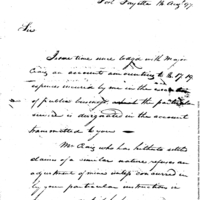 Fort Fayette 14 Augt 97
Sir
Some time since lodged with Major
Craig an account amounting to
expences incurred by me in the
of public business, the particular
service is designated in the account
transmitted to yours —
Mr Craig who has hitherto settled
claims of a similar nature refuses an
adjustment of mine unless concurred in
by your particular instruction in